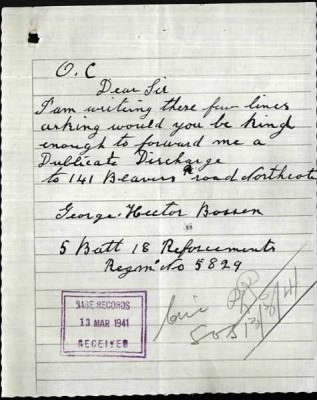 O.C
Dear Sir
I am writing these few lines
asking would you be kind
enough to forward me a
Dublicate Discharge
to 141 Beavers road Northcote
George. Hector Bossen
5 Batt 18 Reforcements
Regm' No 5829
BASE RECORDS
13 MAR 1941
RECEIVED
13/3/41